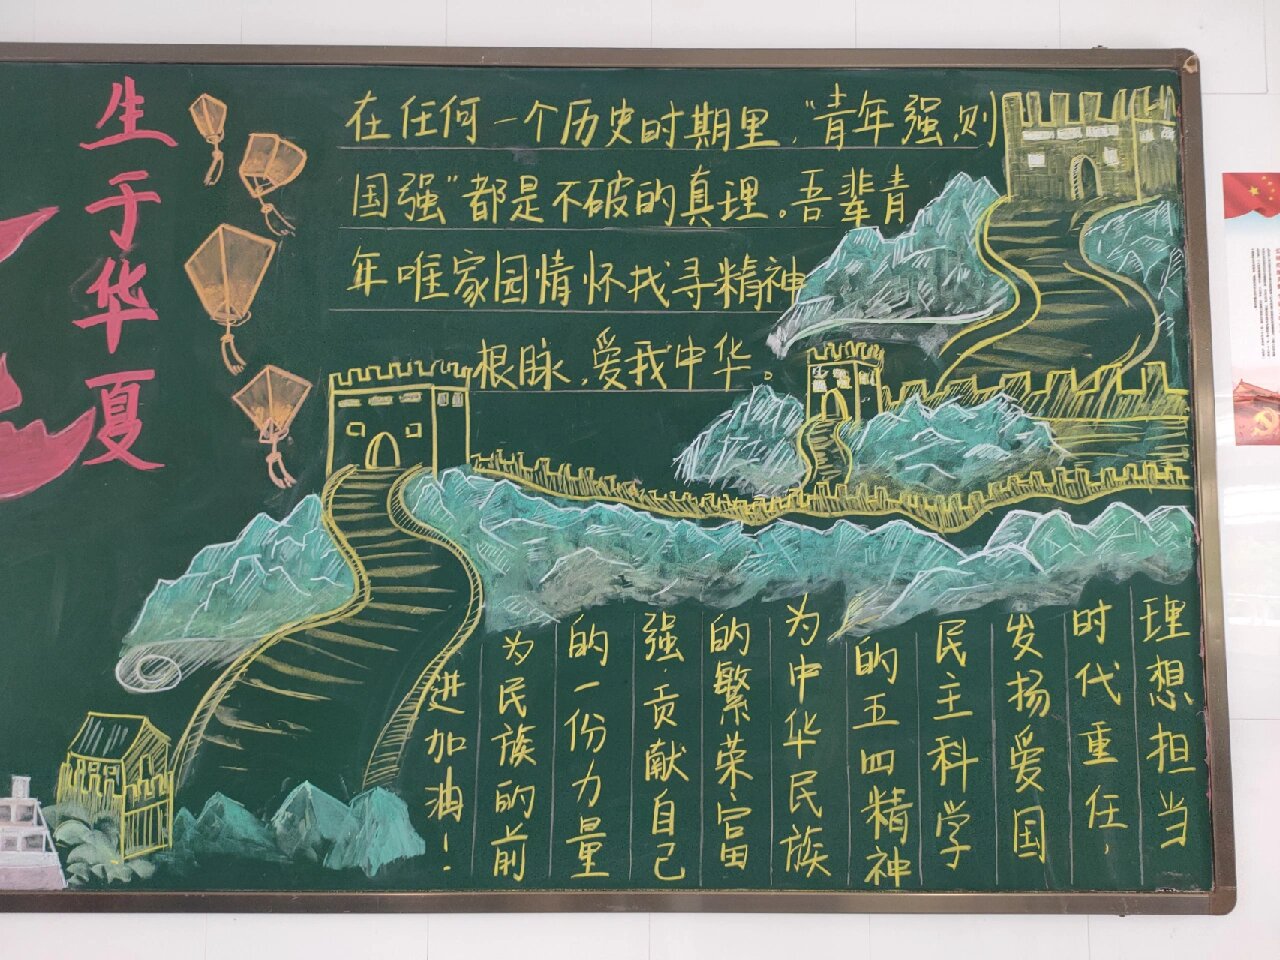 生于华夏
在任何一个历史时期里，“青年强，则
国强”都是不破的真理。吾辈青
年唯家园情怀找寻精神
根脉，爱我中华。
理想担当
时代重任，
发扬爱国
民主科学
的五四精神
为中华民族
的繁荣富
强贡献自己
的一份力量
为民族的前
进加油！